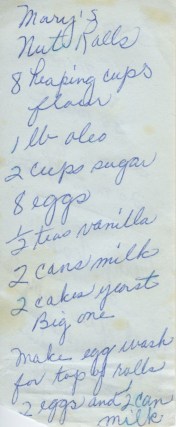 Mary's
Nut Rolls
8 heaping cups
flour
1 lb oleo
2 cups sugar
8 eggs
1/2 teas vanilla
2 cans milk
2 cakes yeast
Big one
Make egg wash
for top of rolls
2 eggs and 1/2 can
milk